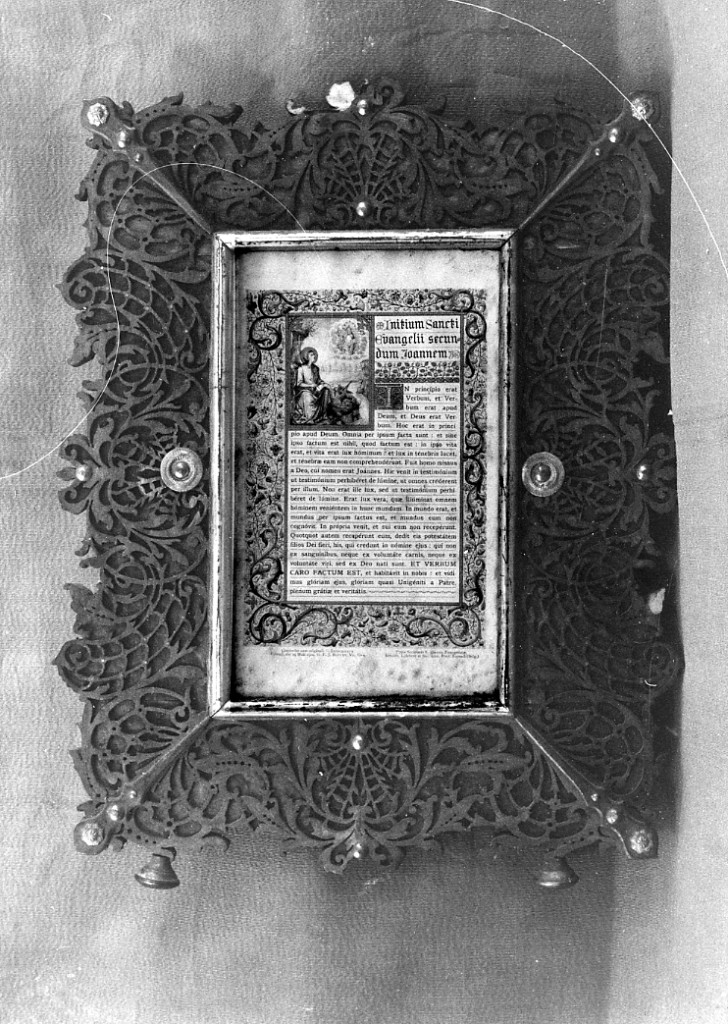 Initium Sancti
Evangelii secun-
dum Joannem
IN princípio erat
Verbum, et Ver-
bum erat apud
Deum, et Deus erat Ver-
bum. Hoc erat in princí-
pio apud Deum. Omnia per ipsum facta sunt : et sine
ipso factum est nihil, quod factum est : in ipso vita
erat, et vita erat lux hóminum : et lux in ténebris lucet,
et ténebræ eam non comprehendérunt. Fuit homo missus
a Deo, cui nomen erat Joánnes. Hic venit in testimónium
ut testimónium perhibéret de lúmine, ut omnes créderent
per illum. Non erat ille lux, sed ut testimónium perhi-
béret de lúmine. Erat lux vera, quæ illúminat omnem
hóminem veniéntem in hunc mundum. In mundo erat, et
mundus per ipsum factus est, et mundus eum non
cognóvit. In própria venit, et sui eum non recepérunt.
Quotquot autem recepérunt eum, dedit eis potestátem
fílios Dei fíeri, his, qui credunt in nómine ejus : qui non
ex sanguínibus, neque ex voluntáte carnis, neque ex
voluntáte viri, sed ex Deo nati sunt. ET VERBUM
CARO FACTUM EST, et habitávit in nobis : et vídi-
mus glóriam ejus, glóriam quasi Unigéniti a Patre,
plenum grátiæ et veritátis.